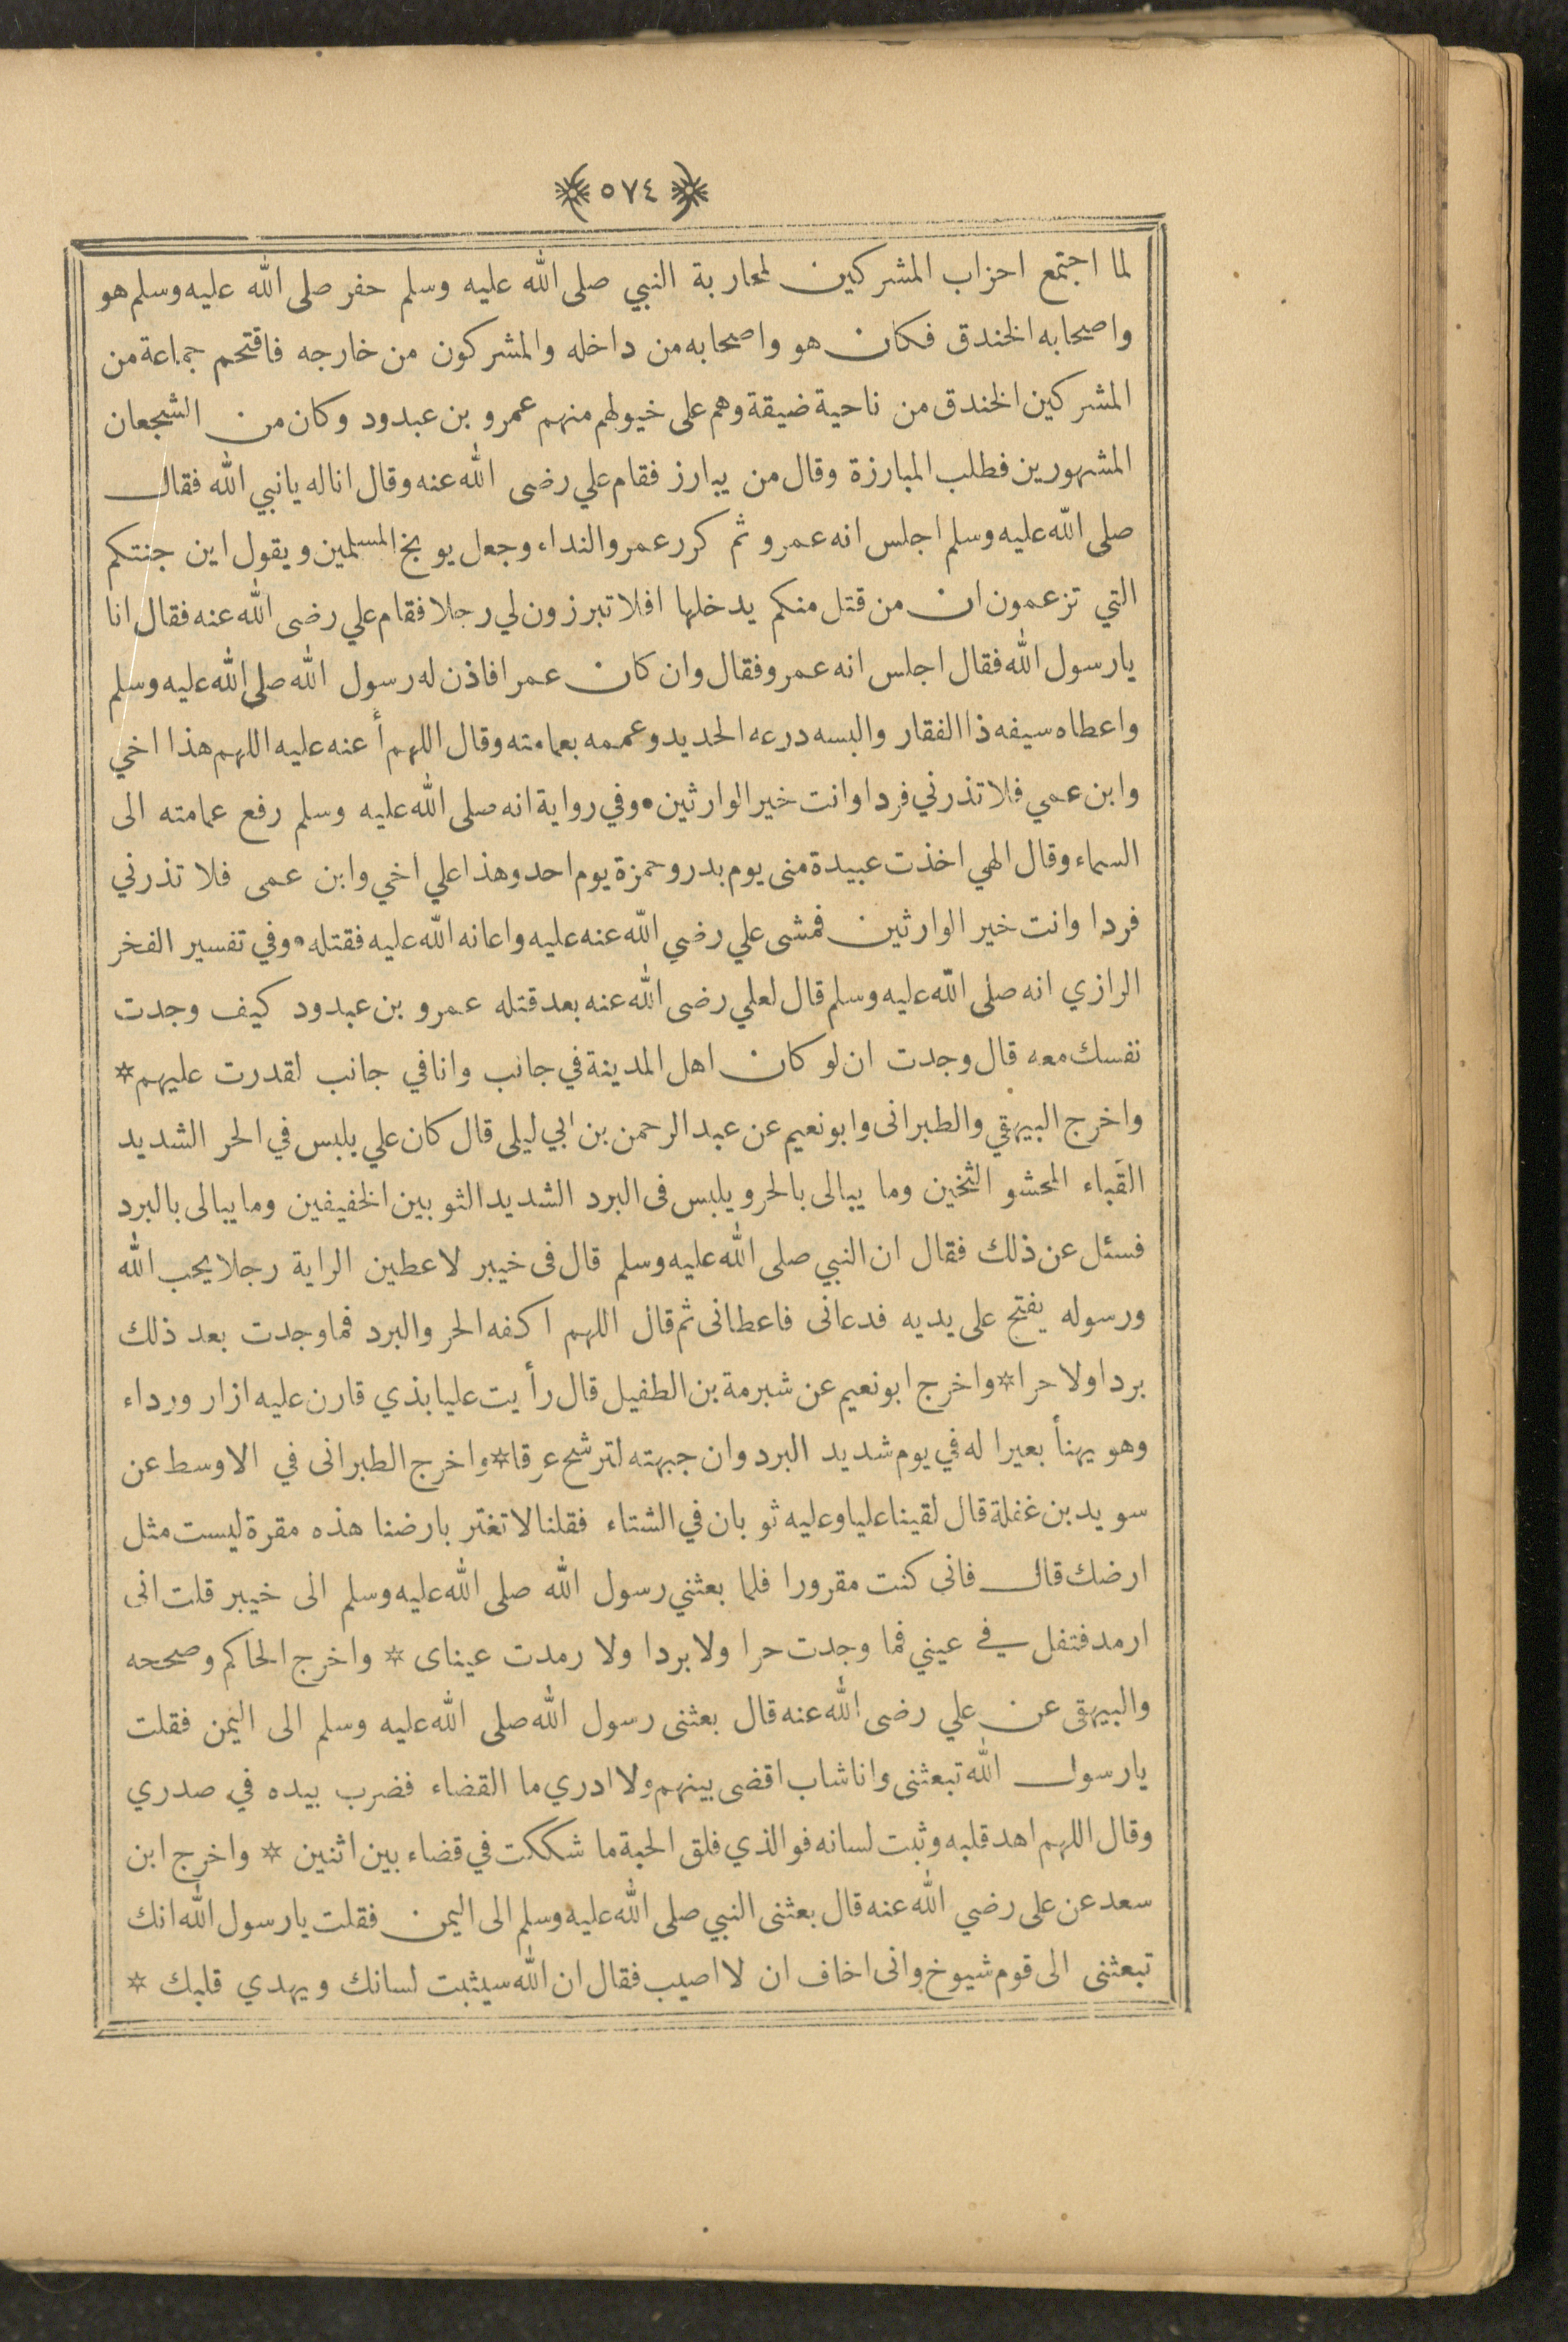 ٥٧٤
لما اجتمع احزاب المشركين لمحاربة النبي صلى الله عليه وسلم حفر صلى الله عليه وسلم هو
واصحابه الخندق فكان هو واصحابه من داخله والمشركون من خارجه فاقتحم جماعة من
المشركين الخندق من ناحية ضيقة وهم على خيولهم منهم عمرو بن عبدود وكان من الشجعان
المشهورين فطلب المبارزة وقال من يبارز فقام علي رضى الله عنه وقال انا له يا نبي الله فقال
صلى الله عليه وسلم اجلس انه عمرو ثم كرر عمرو النداء وجعل يوبخ المسلمين ويقول اين جنتكم
التي تزعمون ان من قتل منكم يدخلها افلا تبرزون لي رجلا فقام علي رضى الله عنه فقال انا
يا رسول الله فقال اجلس انه عمرو فقال وان كان عمرا فاذن له رسول الله صلى الله عليه وسلم
واعطاه سيفه ذا الفقار والبسه درعه الحديد وعممه بعمامته وقال اللهم أعنه عليه اللهم هذا اخي
وابن عمي فلا تذرني فردا وانت خير الوارثين • وفي رواية انه صلى الله عليه وسلم رفع عمامته الى
السماء وقال الهي اخذت عبيدة منى يوم بدر وحمزة يوم احد وهذا علي اخي وابن عمى فلا تذرني
فردا وانت خير الوارثين فمشى علي رضي الله عنه عليه واعانه الله عليه فقتله • وفي تفسير الفخر
الرازي انه صلى الله عليه وسلم قال لعلي رضى الله عنه بعد قتله عمرو بن عبدود كيف وجدت
نفسك معه قال وجدت ان لو كان اهل المدينة في جانب وانا في جانب لقدرت عليهم *
واخرج البيهقي والطبرانى وابو نعيم عن عبد الرحمن بن ابي ليلى قال كان علي يلبس في الحر الشديد
القَباء المحشو الثخين وما يبالى بالحر ويلبس فى البرد الشديد الثوبين الخفيفين وما يبالى بالبرد
فسئل عن ذلك فقال ان النبي صلى الله عليه وسلم قال فى خيبر لاعطين الراية رجلا يحب الله
ورسوله يفتح على يديه فدعانى فاعطانى ثم قال اللهم اكفه الحر والبرد فما وجدت بعد ذلك
بردا ولا حرا * واخرج ابو نعيم عن شبرمة بن الطفيل قال رأيت عليا بذي قار ن عليه ازار ورداء
وهو يهنأ بعيرا له في يوم شديد البرد وان جبهته لترشح عرقا * واخرج الطبرانى في الاوسط عن
سويد بن غفلة قال لقينا عليا وعليه ثوبان في الشتاء فقلنا لا تغتر بارضنا هذه مقرة ليست مثل
ارضك قال فانى كنت مقرورا فلما بعثني رسول الله صلى الله عليه وسلم الى خيبر قلت انى
ارمد فتفل في عيني فما وجدت حرا ولا بردا ولا رمدت عيناى * واخرج الحاكم وصححه
والبيهقى عن علي رضى الله عنه قال بعثنى رسول الله صلى الله عليه وسلم الى اليمن فقلت
يا رسول الله تبعثنى وانا شاب اقضى بينهم ولا ادري ما القضاء فضرب بيده في صدري
وقال اللهم اهد قلبه وثبت لسانه فوالذي فلق الحبة ما شككت في قضاء بين اثنين * واخرج ابن
سعد عن على رضي الله عنه قال بعثنى النبي صلى الله عليه وسلم الى اليمن فقلت يا رسول الله انك
تبعثنى الى قوم شيوخ وانى اخاف ان لا اصيب فقال ان الله سيثبت لسانك ويهدي قلبك *